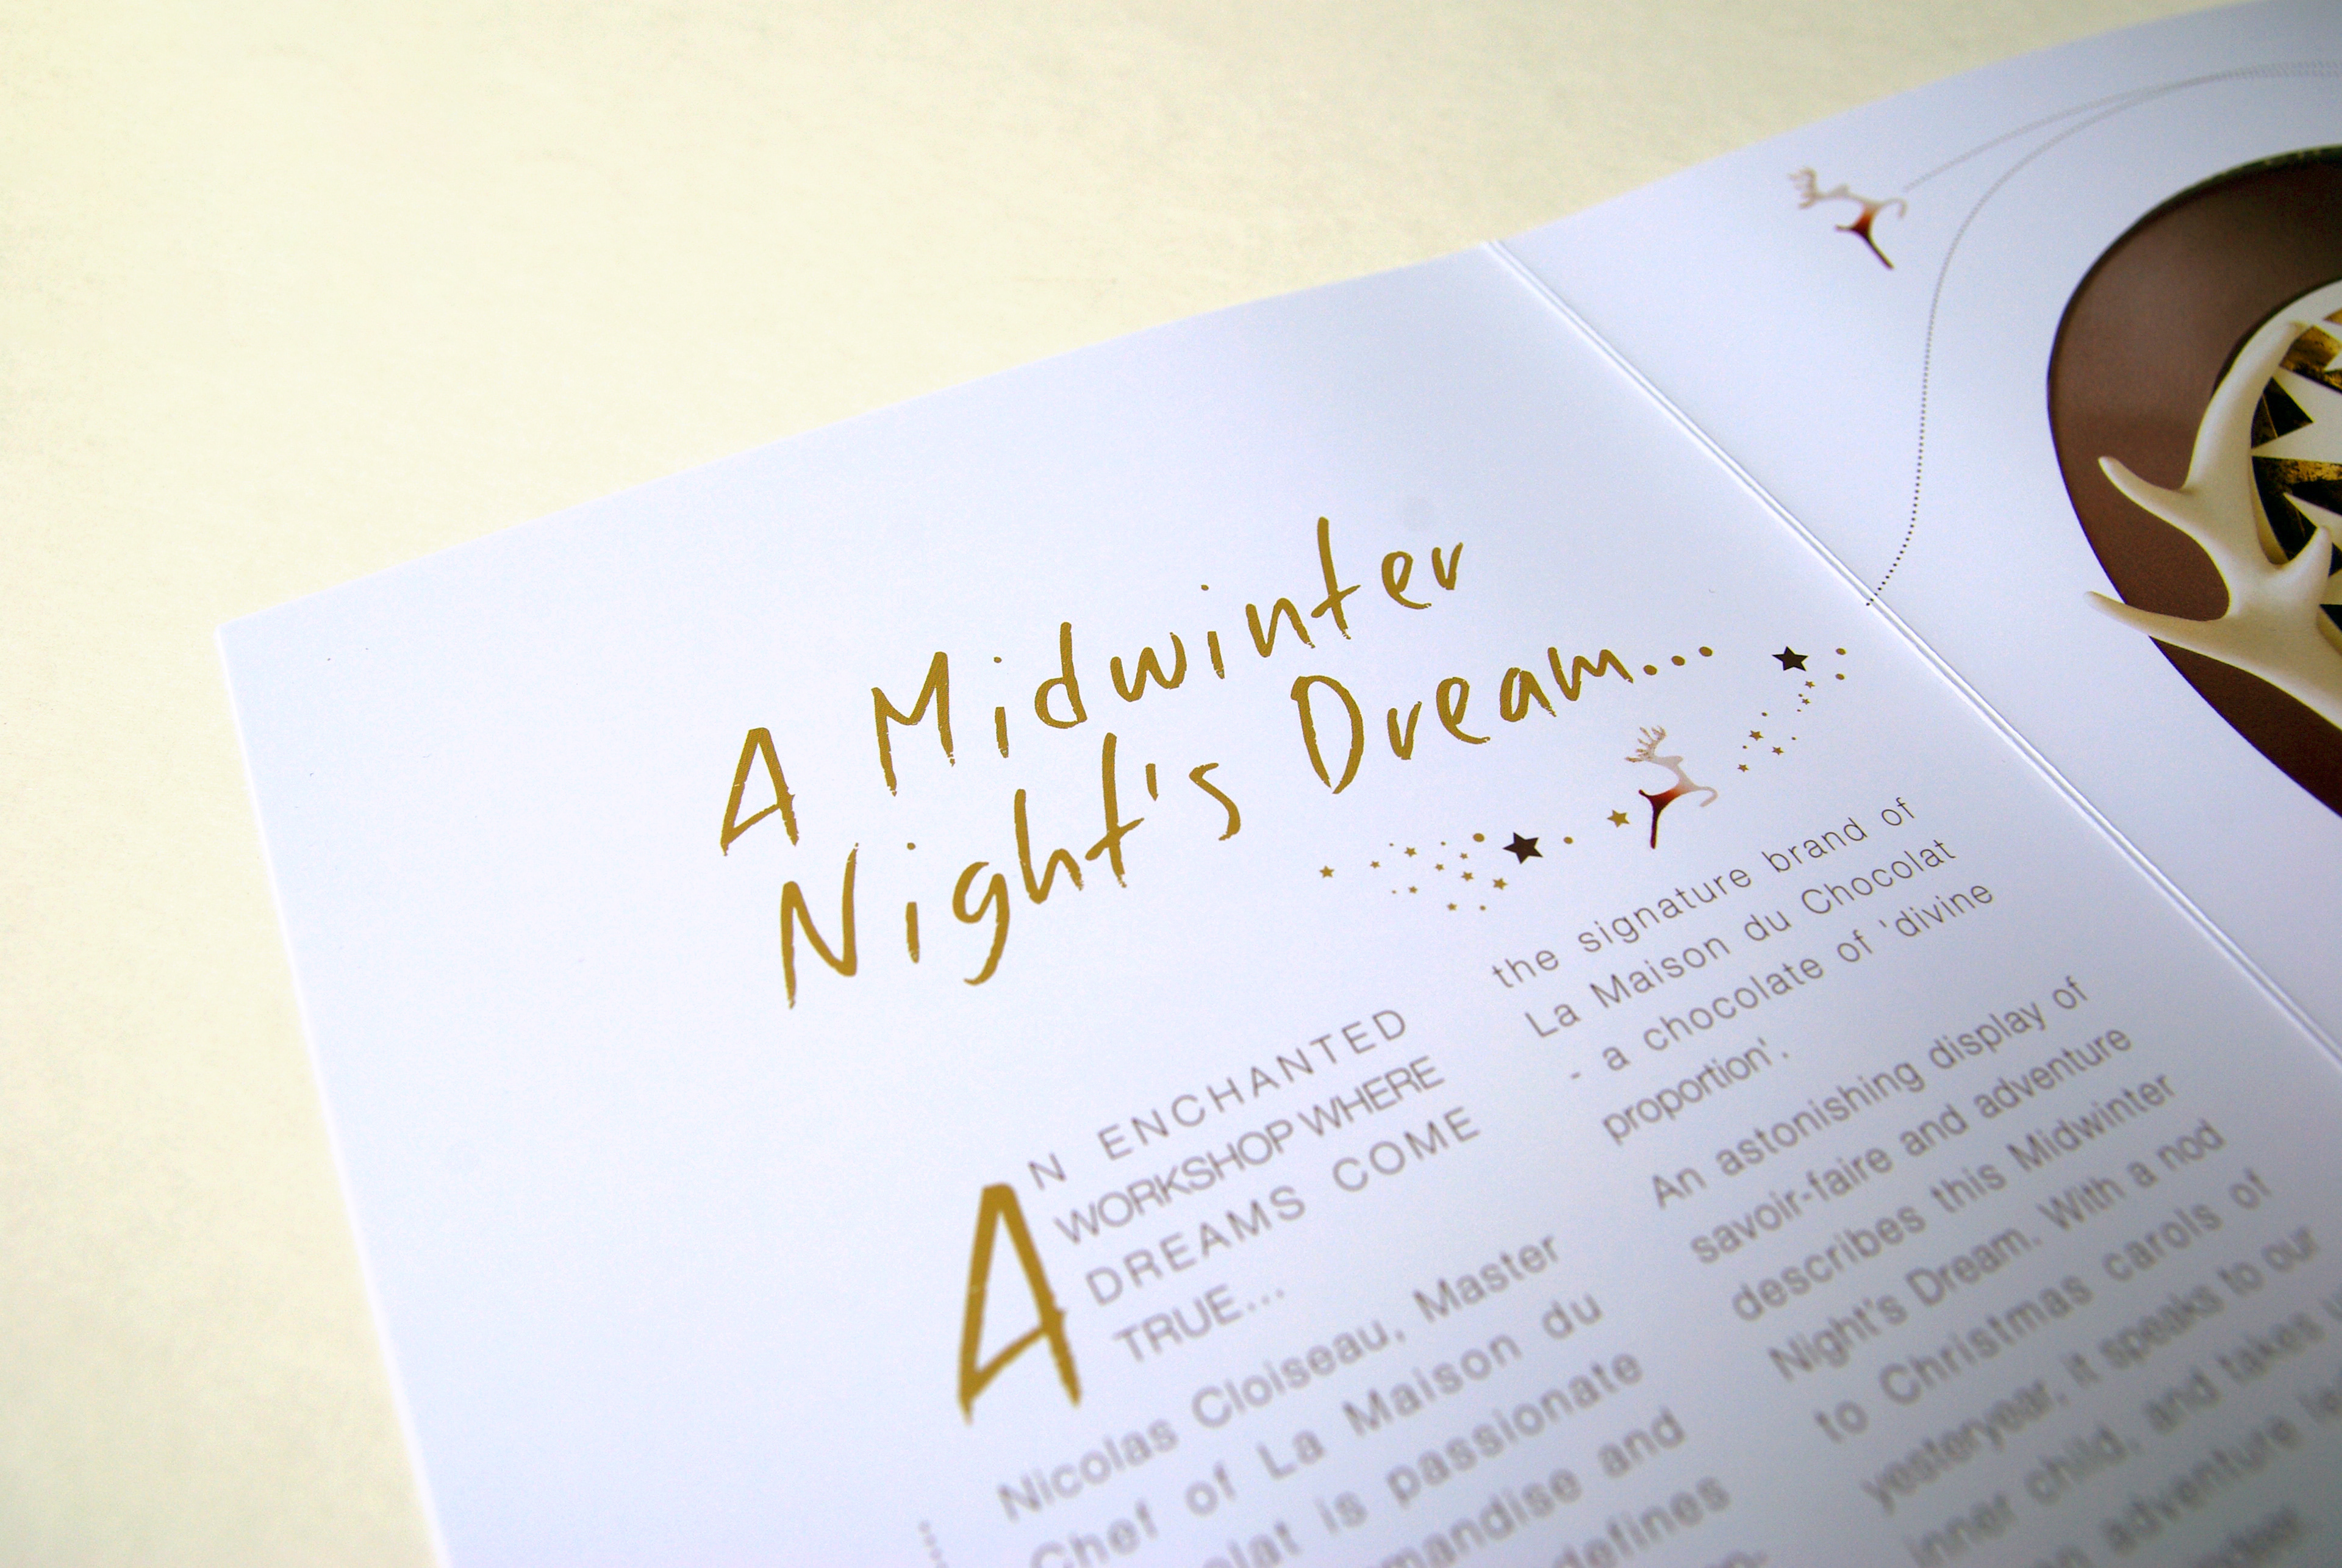 A Midwinter
Night's Dream...
AN ENCHANTED
WORKSHOP WHERE
DREAMS COME
TRUE...
Nicolas Cloiseau, Master
Chef of La Maison du
is passionate
and
defines
the signature brand of
La Maison du Chocolat
- a chocolate of 'divine
proportion'.
An astonishing display of
savoir-faire and adventure
describes this Midwinter
Night's Dream. With a nod
to Christmas carols of
yesteryear, it speaks to our
inner child, and takes
adventure